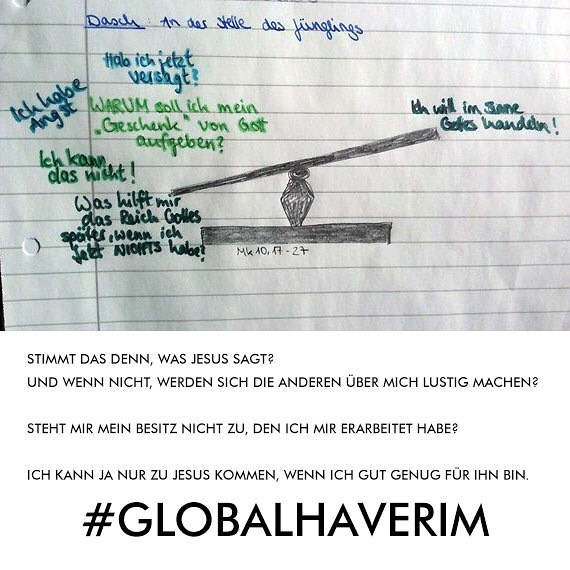 Dasch: In der Stelle des Jünglings
Hab ich jetzt
versagt?
Ich habe
Angst
WARUM soll ich mein
„Geschenk“ von Gott
aufgeben?
Ich will im Sinne
Gottes handeln!
Ich kann
das nicht!
Was hilft mir
das Reich Gottes
später, wenn ich
jetzt NICHTS habe?
Mk 10, 17-27
STIMMT DAS DENN, WAS JESUS SAGT?
UND WENN NICHT, WERDEN SICH DIE ANDEREN ÜBER MICH LUSTIG MACHEN?
STEHT MIR MEIN BESITZ NICHT ZU, DEN ICH MIR ERARBEITET HABE?
ICH KANN JA NUR ZU JESUS KOMMEN, WENN ICH GUT GENUG FÜR IHN BIN.
#GLOBALHAVERIM